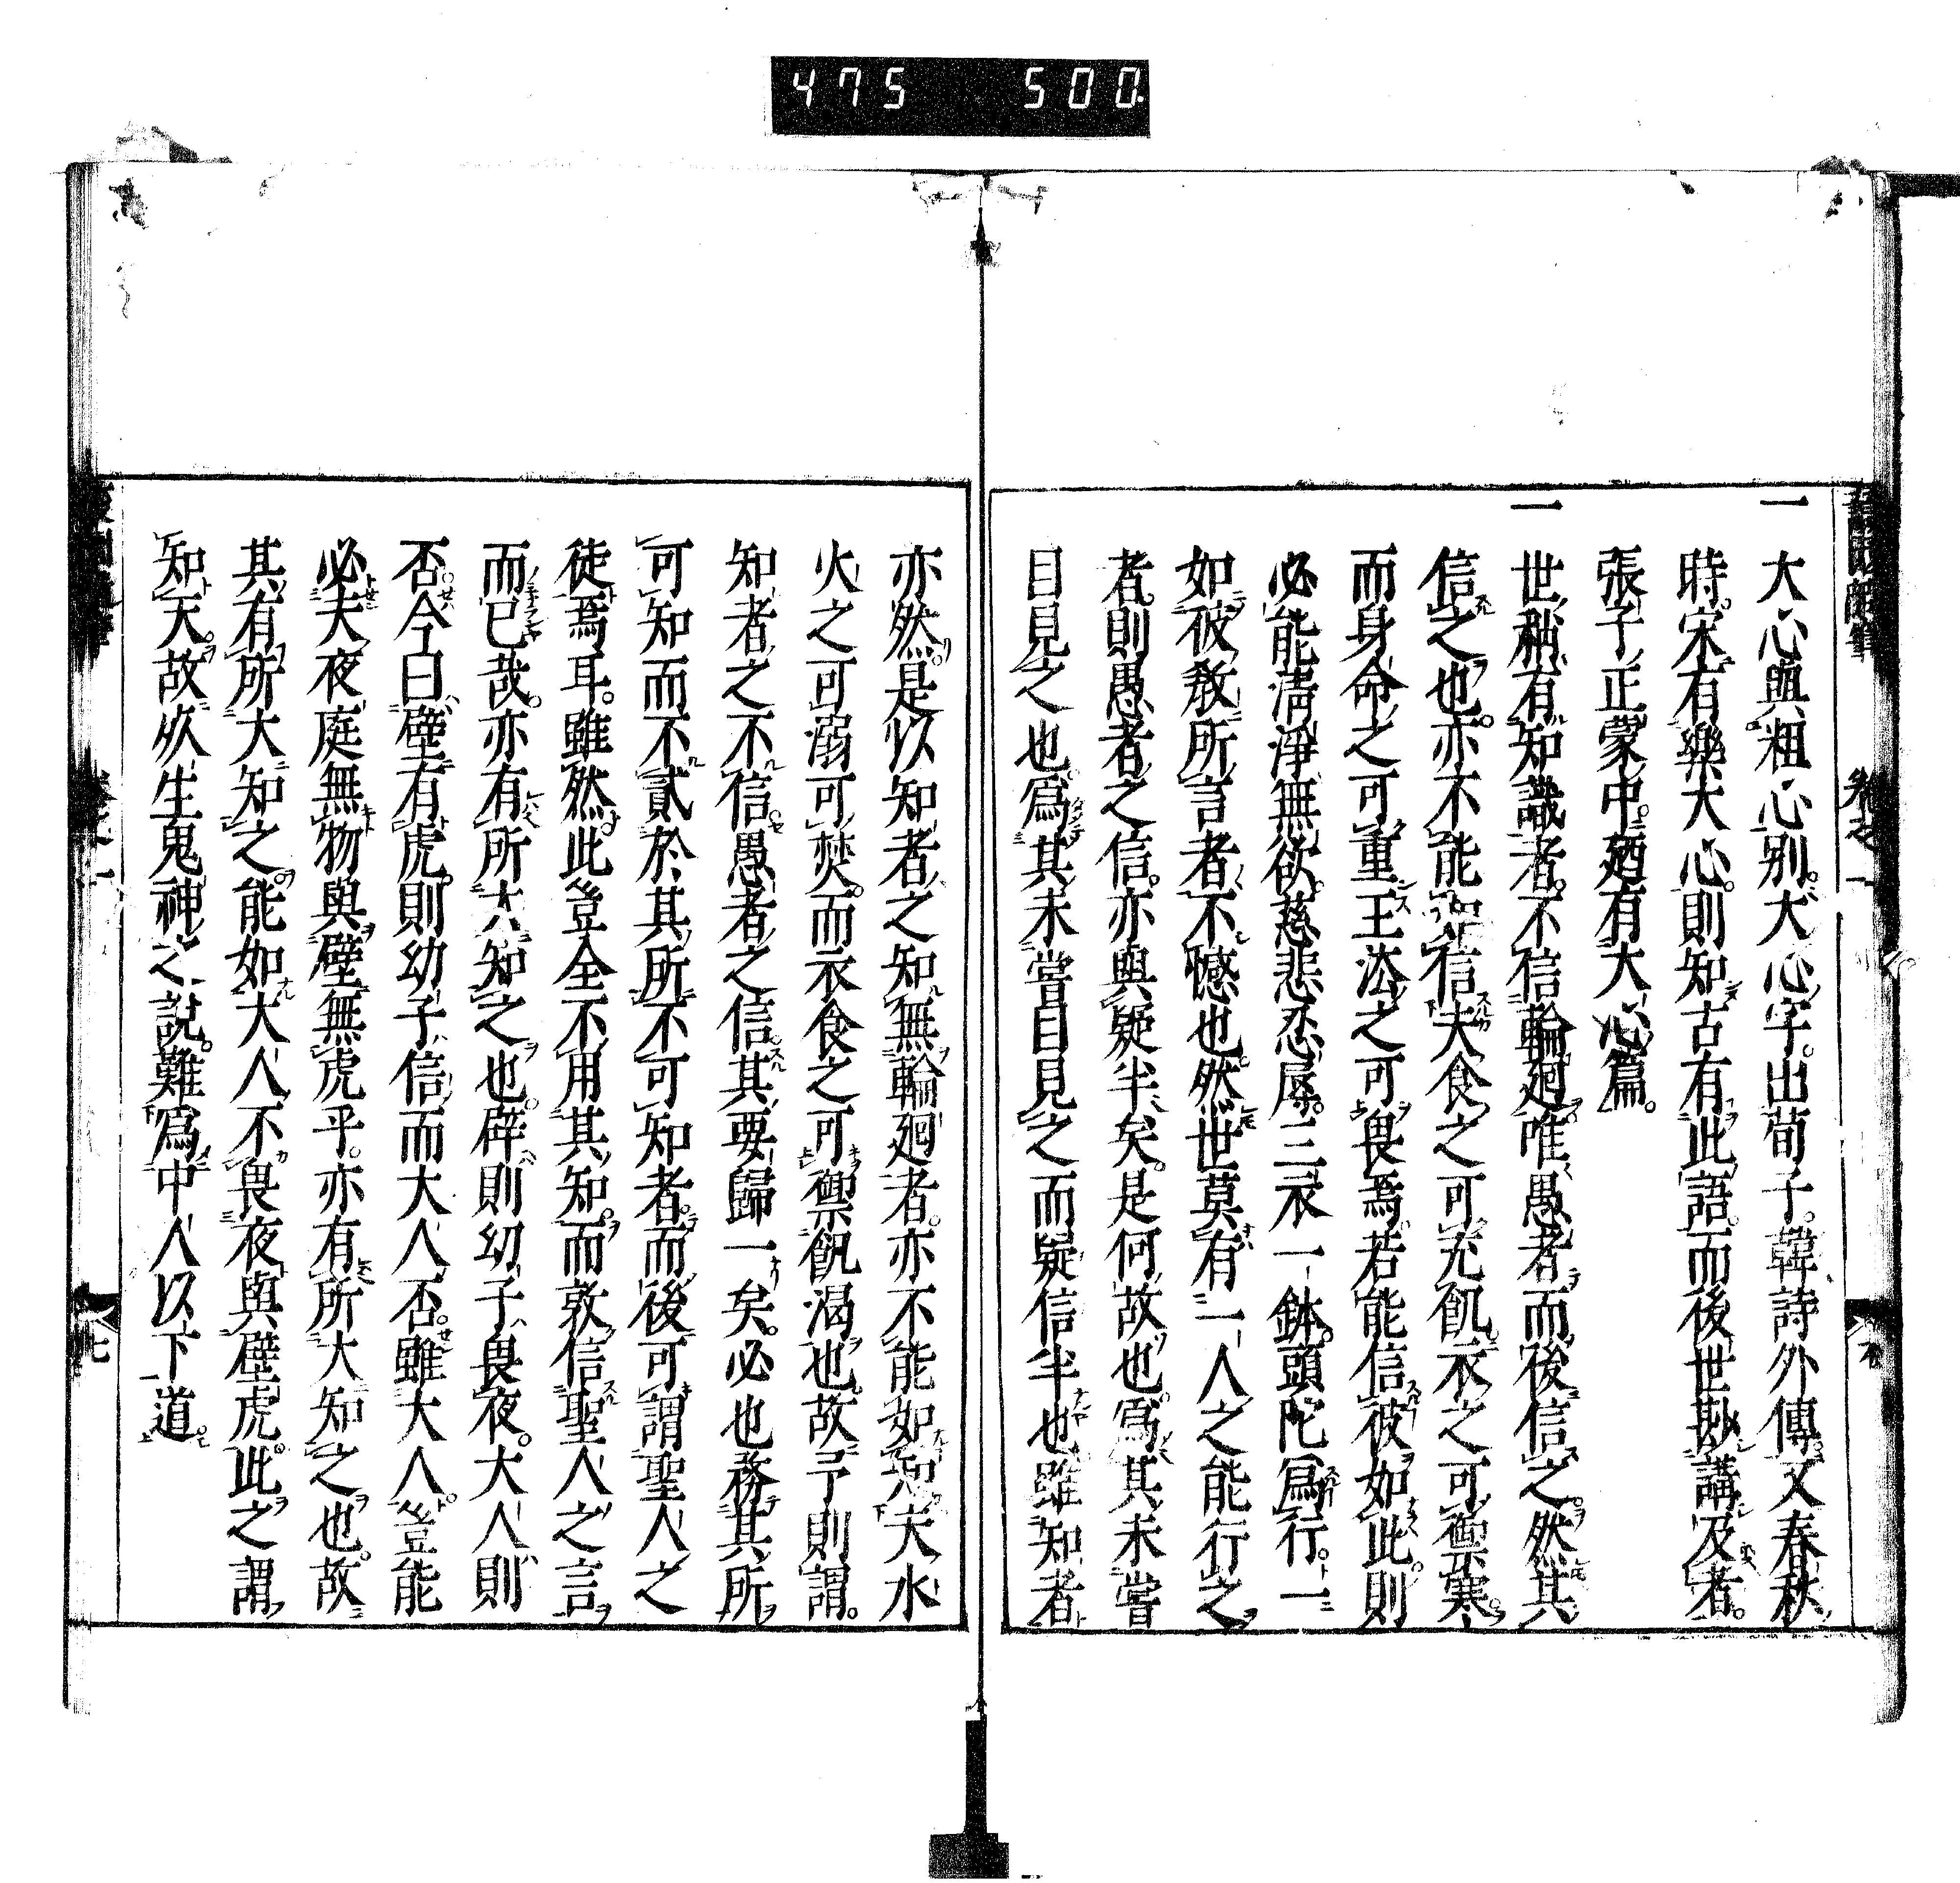 475 500
一大心與粗心別。大心字。出荀子。韓詩外傳。又春秋
時。宋有樂大心。則知古有此語。而後世尠講及者。
張子正蒙中。廼有大心篇。
一世稱有知識者。不信輪廻。唯愚者而後信之。然其
信之也。亦不能如信夫食之可充飢。衣之可禦寒。
而身命之可重王法之可畏焉。若能信彼如此。則
必能淸淨無欲。慈悲忍辱。三衣一鉢。頭陀爲行。一
如彼敎所言者不憾也。然世莫有一人之能行之
者。則愚者之信。亦與疑半矣。是何故也。爲其未嘗
目見之也。爲其未嘗目見之而疑信半也。雖知者
亦然。是以知者之知無輪廻者。亦不能如知夫水
火之可溺可焚。而衣食之可禦飢渴也。故予則謂。
知者之不信。愚者之信。其要歸一矣。必也務其所
可知而不貳於其所不可知者。而後可謂聖人之
徒焉耳。雖然。此豈全不用其知。而敦信聖人之言
而已哉。亦有所大知之也。辟則幼子畏夜。大人則
否。今曰壁有虎。則幼子信。而大人否。雖大人。豈能
必夫夜庭無物與壁無虎乎。亦有所大知之也。故
其有所大知之。能如大人不畏夜與壁虎。此之謂
知天。故死生鬼神之說。難爲中人以下道。
卷之一
七